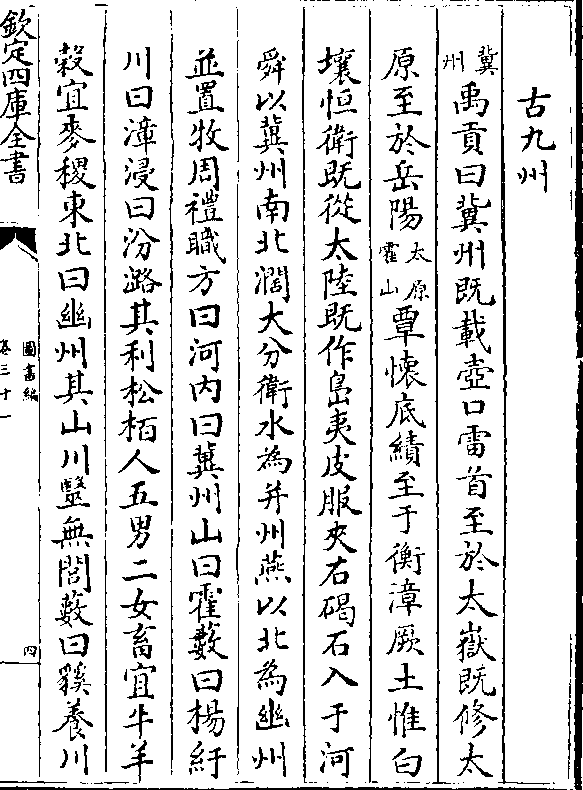 古九州
冀州禹貢曰冀州既載壺口雷首至於太嶽既修太
原至於岳陽太原霍山覃懷底績至于衡漳厥土惟白
壤恒衛既從太陸既作島夷皮服夾右碣石入于河
舜以冀州南北濶大分衛水為并州燕以北為幽州
並置牧周禮職方曰河内曰冀州山曰霍藪曰楊紆
川曰漳浸曰汾潞其利松栢人五男二女畜宜牛羊
榖宜麥稷東北曰幽州其山川醫無閭藪曰豯養川
欽定四庫全書
圖書編
卷三十一
四